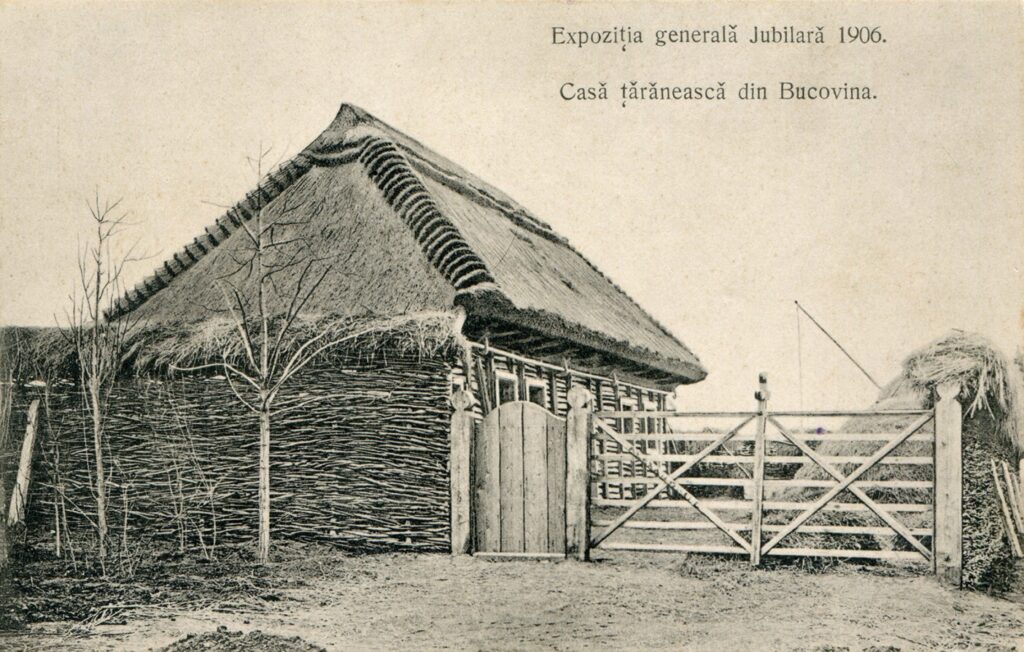 Expoziția generală Jubilară 1906.
Casă țărănească din Bucovina.